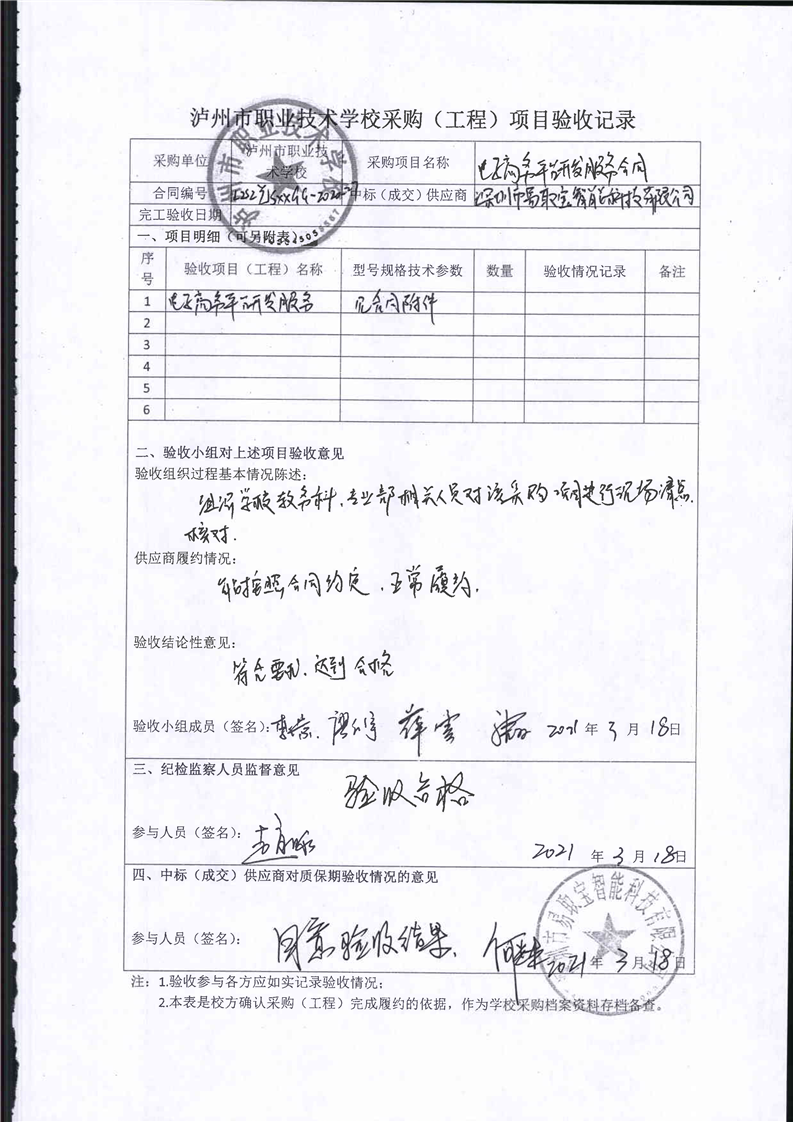 泸州市职业技术学校采购（工程）项目验收记录
采购单位 泸州市职业技术学校 采购项目名称 电子商务平台研发服务合同
合同编号 中标（成交）供应商 深圳市易取宝智能科技有限公司
完工验收日期
一、项目明细（可另附表）
序号 验收项目（工程）名称 型号规格技术参数 数量 验收情况记录 备注
1 电子商务平台研发服务 见合同附件
2
3
4
5
6
二、验收小组对上述项目验收意见
验收组织过程基本情况陈述：
组织学校教务科、专业部相关人员对该采购项目进行现场清点、
核对.
供应商履约情况：
能按照合同约定，正常履约.
验收结论性意见：
符合要求、达到合格
验收小组成员（签名）： 2021 年 3 月 18日
三、纪检监察人员监督意见
验收合格
参与人员（签名）：
2021 年 3 月 18日
四、中标（成交）供应商对质保期验收情况的意见
参与人员（签名）： 同意验收结果. 2021 年 3 月 18 日
注： 1.验收参与各方应如实记录验收情况；
2.本表是校方确认采购（工程）完成履约的依据，作为学校采购档案资料存档备查。